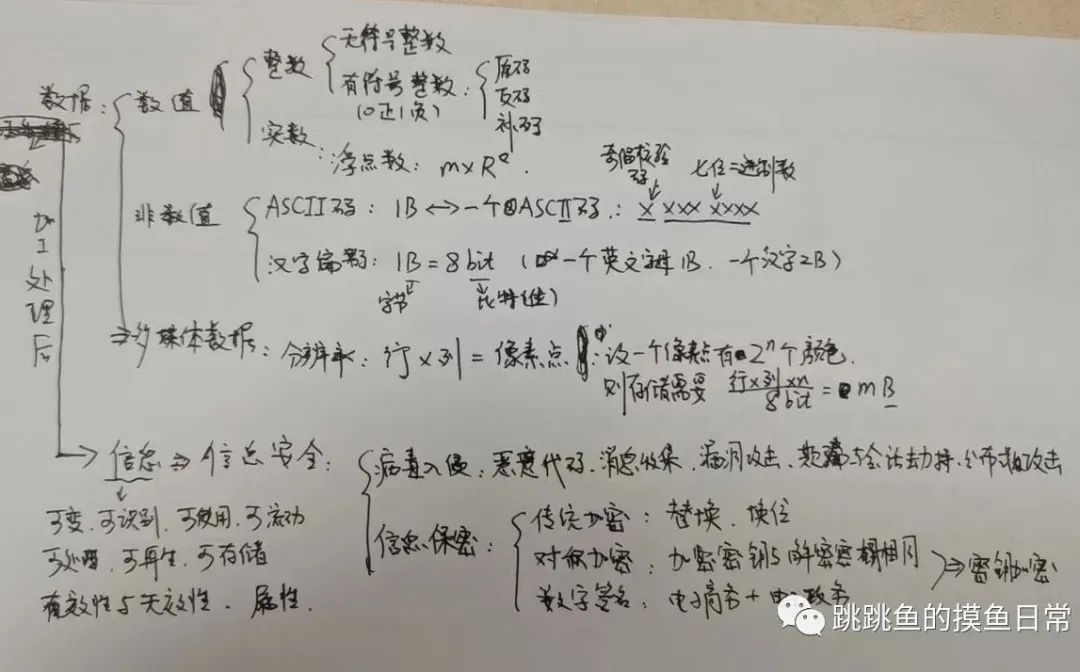 数据：
数值
整数
无符号整数
有符号整数：
（0正1负）
原码
反码
补码
实数：
浮点数：m×Rᵉ．
非数值
奇偶校验码
七位二进制数
ASCII码：1B↔一个ASCII码：X XXX XXXX
汉字编码：1B = 8bit （一个英文字母1B．一个汉字2B）
字节
比特（位）
⇒多媒体数据：分辨率：行×列 = 像素点
设一个像素点有2ⁿ个颜色．
则存储需要 行×列×n/8bit = mB
加工处理后
信息 ⇒ 信息安全：
病毒入侵：恶意代码、消息收集、漏洞攻击、欺骗与会话劫持、分布式攻击
可变、可识别、可使用、可流动
可处理、可再生、可存储
有效性与无效性．属性．
信息保密：
传统加密：替换、换位
对称加密：加密密钥与解密密钥相同
数字签名：电子商务+电子政务
⇒密钥加密
跳跳鱼的摸鱼日常